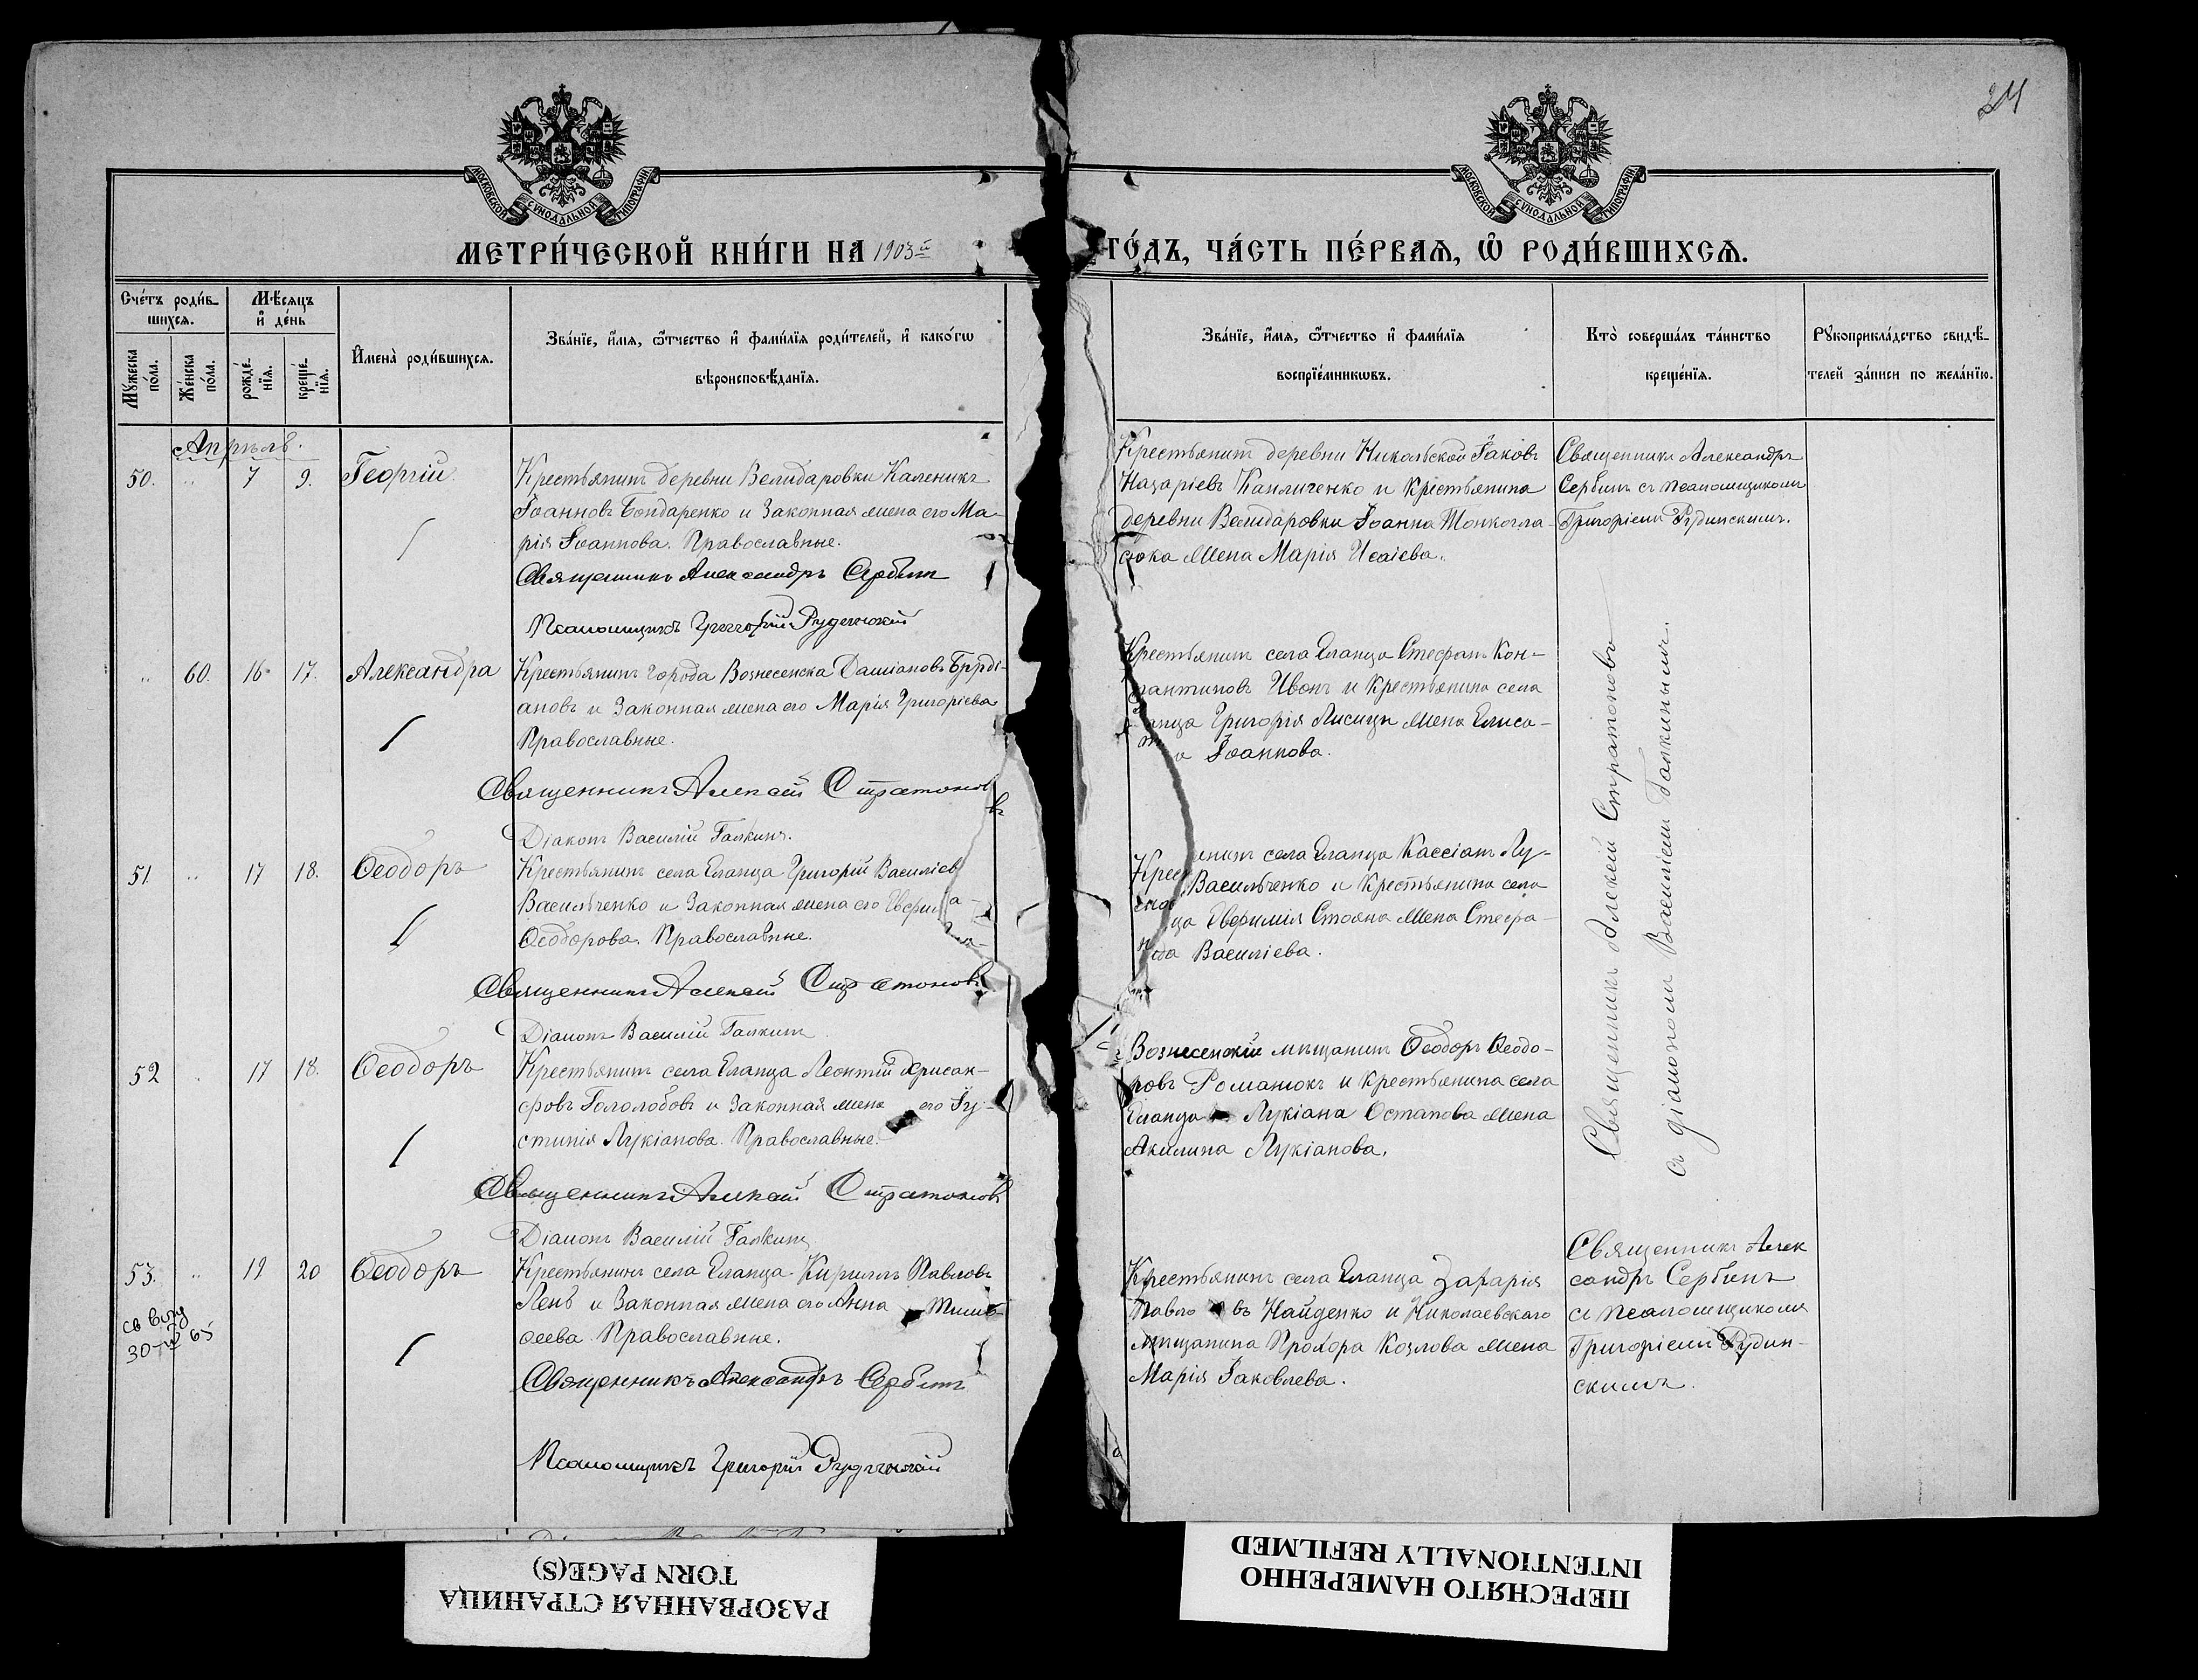 24
МОСКОВСКОЙ СѴНОДАЛЬНОЙ ТИПОГРАФІИ
МОСКОВСКОЙ СѴНОДАЛЬНОЙ ТИПОГРАФІИ
МЕТРИ́ЧЕСКОЙ КНИ́ГИ НА 1903й ГО́ДЪ, ЧА́СТЬ ПЕ́РВАѦ, Ѡ҆ РОДИ́ВШИХСѦ.
Сче́тъ роди́в-
шихсѧ.
Мѣ́сѧцъ
и҆ де́нь
Мꙋ́жеска по́ла.
Же́нска по́ла.
рожде́-
нїѧ.
креще́-
нїѧ.
И҆мена̀ роди́вшихсѧ.
Зва́нїе, и҆́мѧ, ѻ҆́тчество и҆ фамі́лїѧ роди́телей, и҆ како́гѡ
вѣроисповѣ́данїѧ.
Зва́нїе, и҆́мѧ, ѻ҆́тчество и҆ фамі́лїѧ
воспрїе́мникѡвъ.
Кто̀ соверша́лъ та́инство
креще́нїѧ.
Рꙋкоприкла́дство свидѣ́-
телей за́писи по жела́нїю.
Апрѣль.
50. " 7 9. Георгій.
Крестьянинъ деревни Велидаровки Каленикъ
Іоанновъ Бондаренко и Законная жена его Ма-
рія Іоаннова. Православные.
Священникъ Александръ Сербинъ
Псаломщикъ Григорій Рудинскій
Крестьянинъ деревни Никольской Іаковъ
Назаріевъ Капличенко и Крестьянина
деревни Велидаровки Іоанна Тонкогла-
сюка жена Марія Исаіева.
Священникъ Александръ
Сербинъ съ псаломщикомъ
Григоріемъ Рудинскимъ.
" 60. 16 17. Александра
Крестьянинъ города Вознесенска Даміановъ
ановъ и Законная жена его Марія Григоріева
Православные.
Священникъ Алексій Стратоновъ
Діаконъ Василій Галкинъ.
Крестьянинъ села Еланца Стефанъ Кон-
антиновъ Ивонъ и Крестьянина села
анца Григорія Лисицы жена Елиса-
Іоаннова.
Священникъ Алексій Стратоновъ
съ діакономъ Василіемъ Галкинымъ.
51. " 17 18. Ѳеодоръ
Крестьянинъ села Еланца Григорій Василіев
Васильченко и Законная жена его Евфим
Ѳеодорова. Православные.
Священникъ Алексій Стратоновъ
Діаконъ Василій Галкинъ
Крес нинъ села Еланца Кассіанъ Лу-
Васильченко и Крестьянина села
ца Евфимія Стояна жена Стефа-
да Василіева.
52 " 17 18. Ѳеодоръ
Крестьянинъ села Еланца Леонтій Хрисан-
фовъ Гололобовъ и Законная жена его Іу-
стинія Лукіанова. Православные.
Священникъ Алексій Стратоновъ
Діаконъ Василій Галкинъ
Вознесенскій мѣщанинъ Ѳеодоръ Ѳеодо-
ровъ Романюкъ и Крестьянина села
Еланца Лукіана Остапова жена
Акилина Лукіанова.
53. " 19 20 Ѳеодоръ
св выд
30-IV 65
Крестьянинъ села Еланца Кириллъ Павловъ
Лень и Законная жена его Анна Тимо-
ѳеева. Православные.
Священникъ Александръ Сербинъ
Псаломщикъ Григорій Рудинскій
Крестьянинъ села Еланца Захарія
Павло въ Найденко и Николаевскаго
мѣщанина Прохора Козлова жена
Марія Іаковлева.
Священникъ Алек
сандръ Сербинъ
съ псаломщикомъ
Григоріемъ Рудин-
скимъ.
РАЗОРВАННАЯ СТРАНИЦА
TORN PAGE(S)
ПЕРЕСНЯТО НАМЕРЕННО
INTENTIONALLY REFILMED